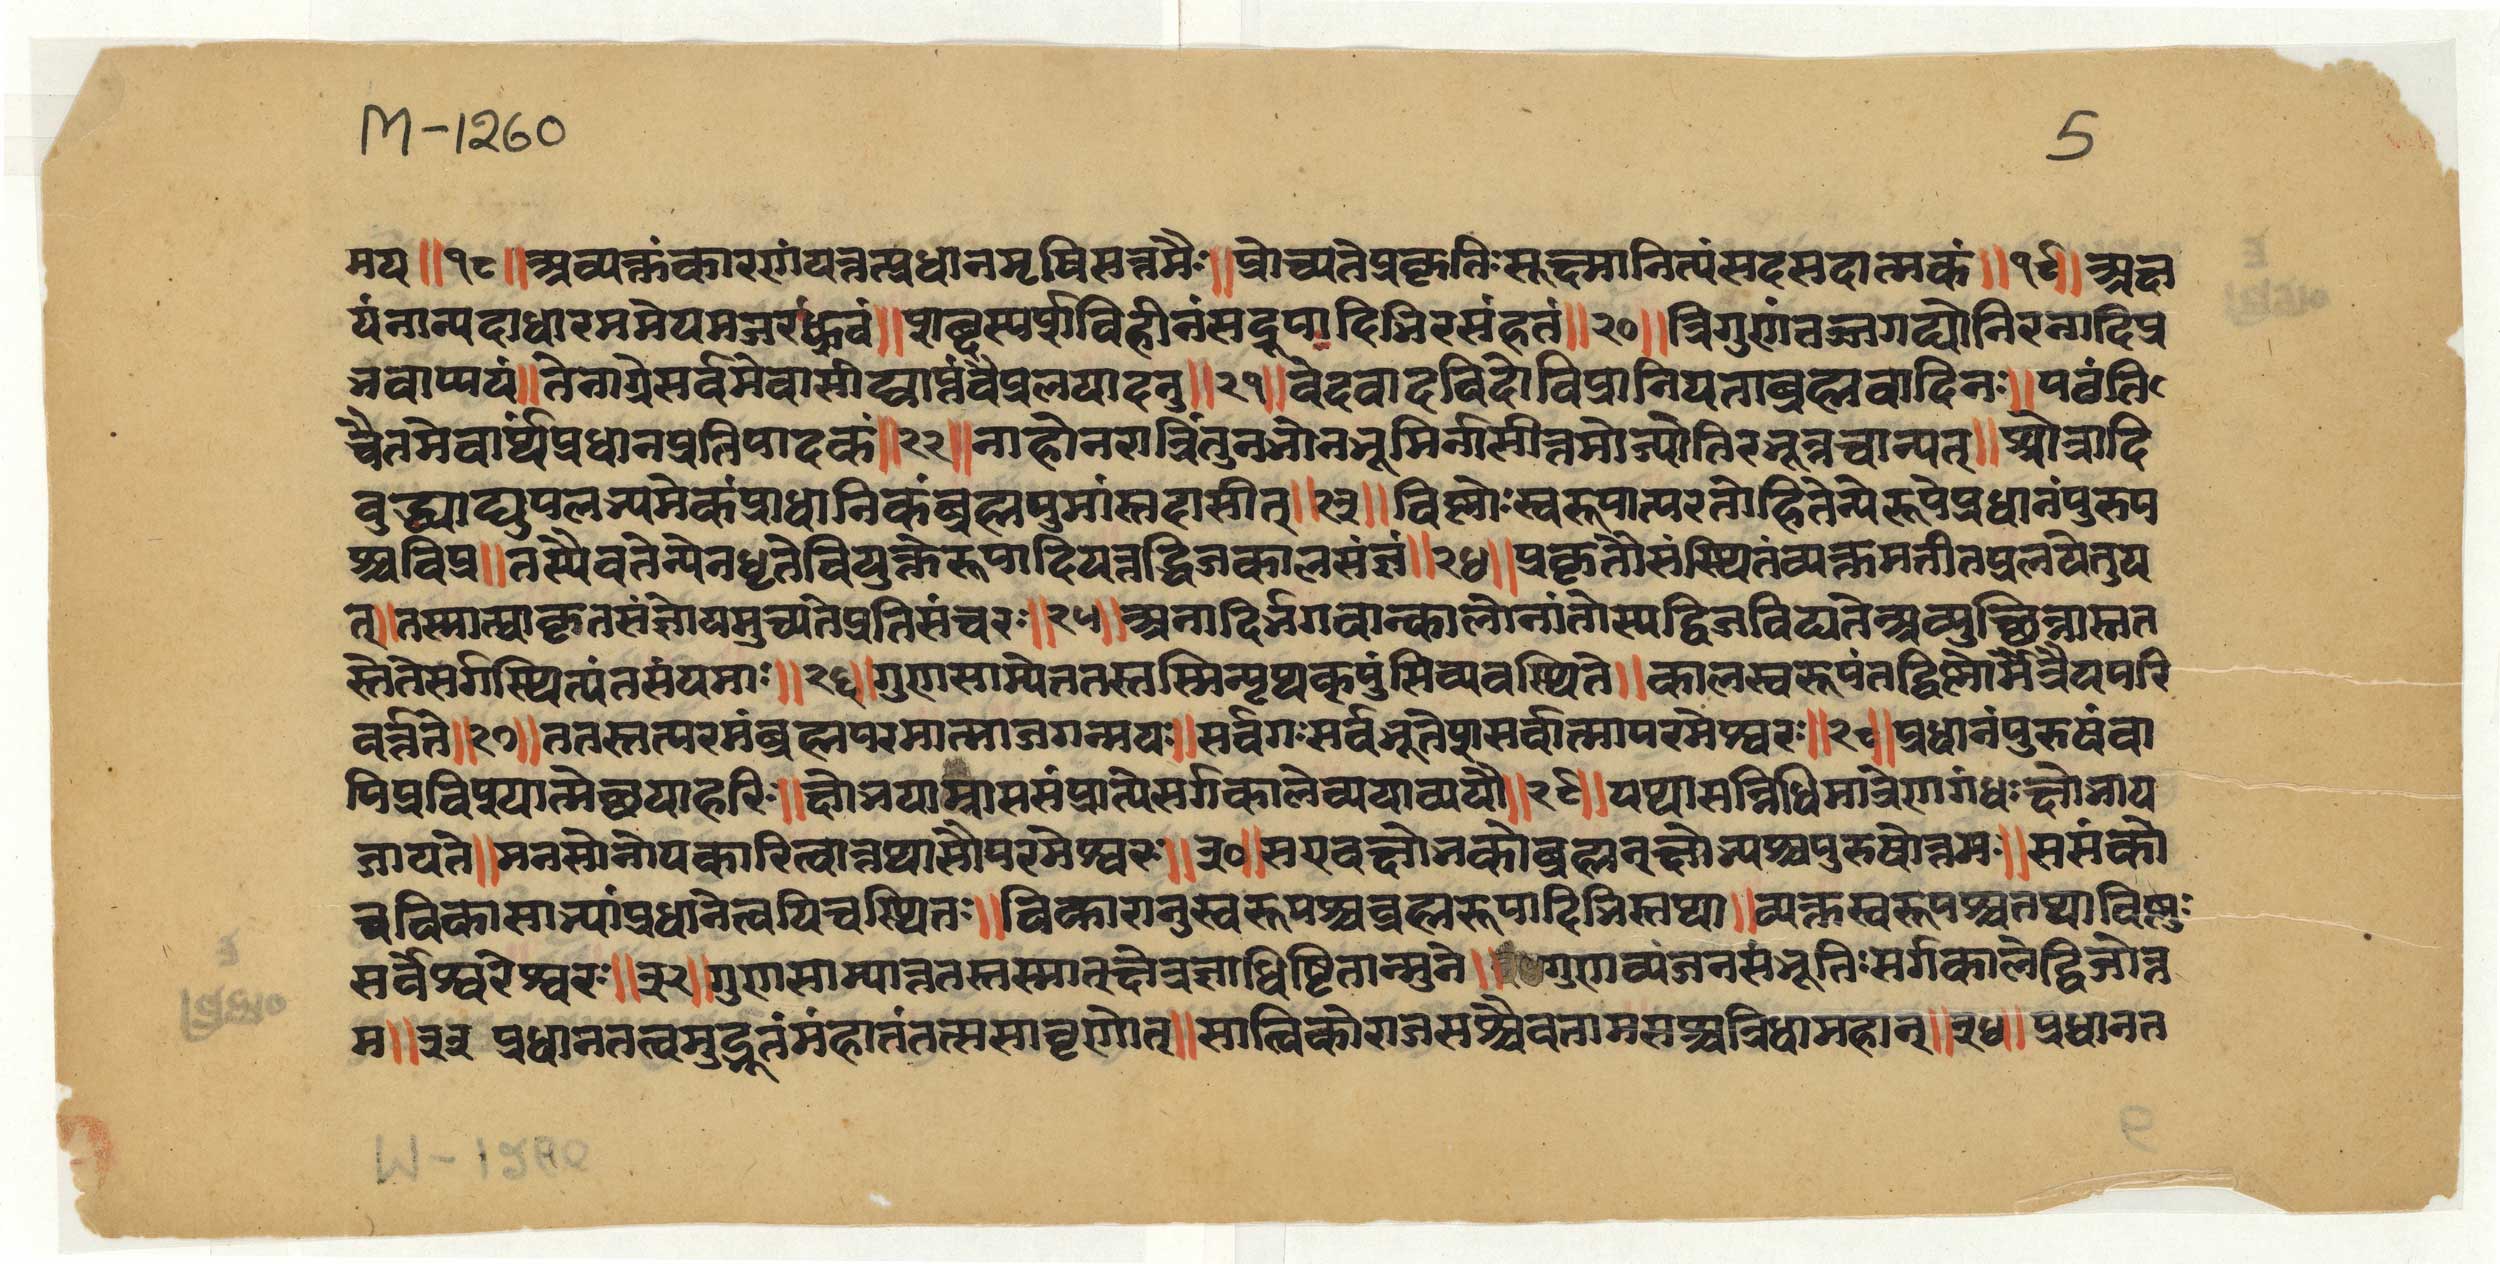 M-1260
5
मय॥१८॥अव्यक्तंकारणंयत्तत्प्रधानमृषिसत्तमैः॥प्रोच्यतेप्रकृतिःसूक्ष्मानित्यंसदसदात्मकं॥१९॥अक्ष
यंनान्यदाधारममेयमजरंध्रुवं॥शब्दस्पर्शविहीनंसद्रूपादिभिरसंहतं॥२०॥त्रिगुणंतज्जगद्योनिरनादिप्र
भवाप्ययं॥तेनाग्रेसर्वमेवासीद्व्याप्तंवैप्रलयादनु॥२१॥वेदवादविदोविप्रानियताब्रह्मवादिनः॥पठंति
चैतमेवार्थंप्रधानप्रतिपादकं॥२२॥नाहोनरात्रिंतुनभोनभूमिर्नासीत्तमोज्योतिरभून्नचान्यत्॥श्रोत्रादि
बुद्ध्याद्युपलभ्यमेकंप्राधानिकंब्रह्मपुमांस्तदासीत्॥२३॥विष्णोःस्वरूपात्परतोहितेन्येरूपेप्रधानंपुरुष
श्चविप्र॥तस्यैवतेन्येनधृतेवियुक्तेरूपादियत्तद्द्विजकालसंज्ञं॥२४॥प्रकृतौसंस्थितंव्यक्तमतीतप्रलयेतुय
त्॥तस्मात्प्राकृतसंज्ञोयमुच्यतेप्रतिसंचरः॥२५॥अनादिर्भगवान्कालोनांतोस्यद्विजविद्यतेअव्युच्छिन्नास्तत
स्तेतेसर्गस्थित्यंतसंयमाः॥२६॥गुणसाम्येततस्तस्मिन्पृथक्पुंसिव्यवस्थिते॥कालस्वरूपंतद्विष्णोर्मैत्रेयपरि
वर्त्तते॥२७॥ततस्तत्परमंब्रह्मपरमात्माजगन्मयः॥सर्वगःसर्वभूतेशसर्वात्मापरमेश्वरः॥२८॥प्रधानंपुरुषंचा
पिप्रविश्यात्मेच्छयाहरिः॥क्षोभयामाससंप्राप्तेसर्गकालेव्ययाव्ययौ॥२९॥यथासन्निधिमात्रेणगंधःक्षोभाय
जायते॥मनसोनोपकारित्वात्तथासौपरमेश्वरः॥३०॥सएवक्षोभकोब्रह्मन्क्षोभ्यश्चपुरुषोत्तमः॥ससंको
चविकासाभ्यांप्रधानेत्वयिचस्थितः॥विकारानुस्वरूपश्चब्रह्मरूपादिभिस्तथा॥व्यक्तस्वरूपश्चतथाविष्णुः
सर्वेश्वरेश्वरः॥३२॥गुणसाम्यात्ततस्तस्मात्क्षेत्रज्ञाधिष्टितान्मुने॥गुणव्यंजनसंभूतिःसर्गकालेद्विजोत्त
म॥३३ प्रधानतत्वमुद्भूतंमंहातंतत्समावृणोत्॥सात्विकोराजसश्चैवतामसश्चत्रिधामहान्॥३४॥प्रधानत